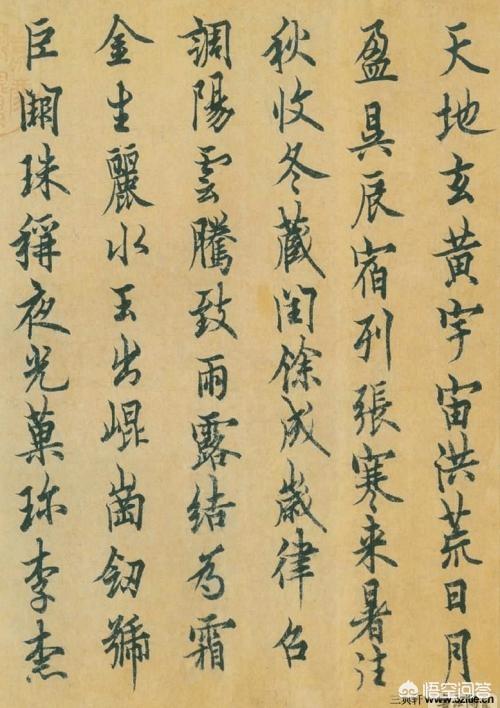 天地玄黃宇宙洪荒日月
盈昃辰宿列張寒来暑往
秋收冬蔵閏餘成歲律召
調陽雲騰致雨露結為霜
金生麗水玉出崐崗劒號
巨闕珠稱夜光菓珍李柰
悟空问答